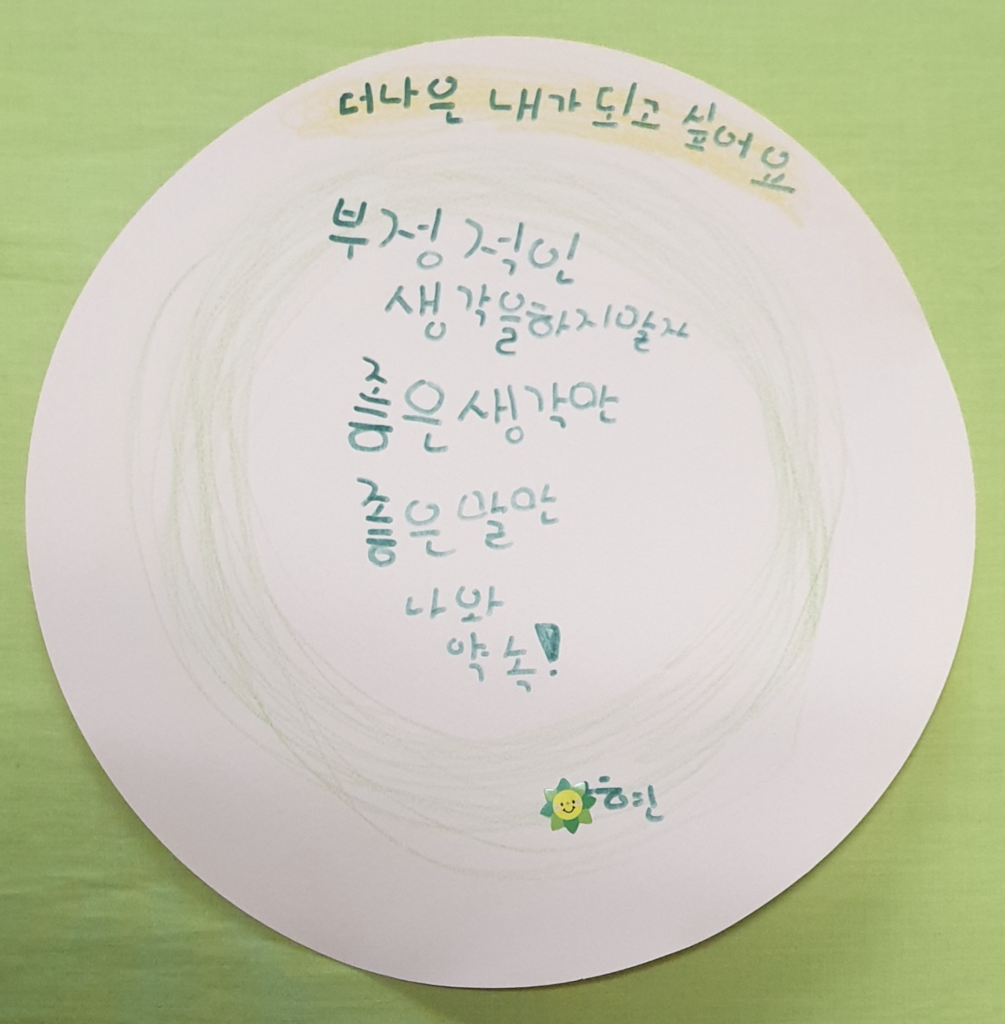 더나은 내가 되고 싶어요
부정적인
생각을하지말자
좋은생각만
좋은말만
나와
약속!
현